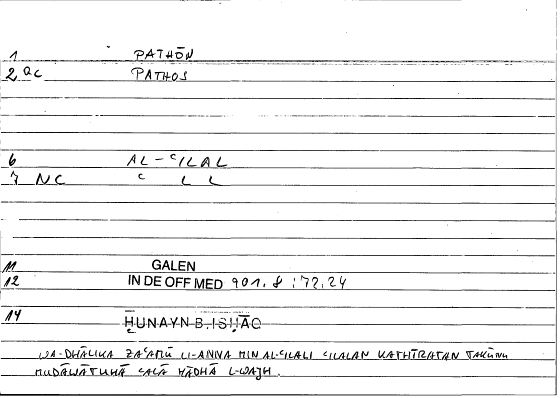 1 PATHŌN
2 QC PATHOS
6 AL-ʿILAL
7 NC ʿ L L
11 GALEN
12 IN DE OFF MED 901.8 : 72,24
14 ḤUNAYN B. ISḤĀQ
WA-DHĀLIKA ZAʿAMŪ LI-ANNA MIN AL-ʿILALI ʿILALAN KATHĪRATAN TAKŪNU
MUDĀWĀTUHĀ ʿALĀ HĀDHĀ L-WAJH.